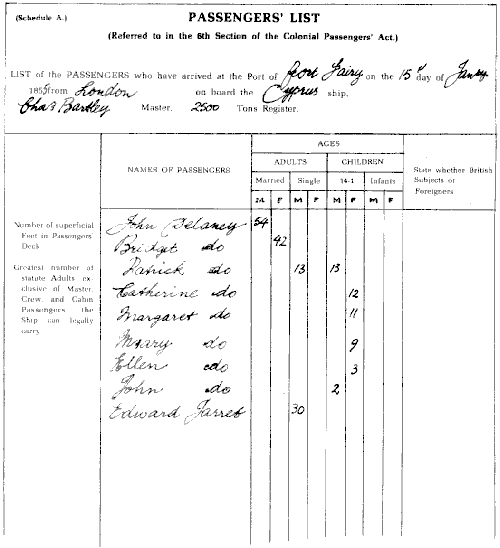 (Schedule A.)
PASSENGERS' LIST
(Referred to in the 6th Section of the Colonial Passengers' Act.)
LIST of the PASSENGERS who have arrived at the Port of Port Fairy on the 15 day of Janry
1855 from London on board the Cyprus ship.
Chas Bartley Master. 2500 Tons Register.
NAMES OF PASSENGERS
AGES
ADULTS CHILDREN
Married Single 14-1 Infants
M F M F M F M F
State whether British
Subjects or
Foreigners
Number of superficial
Feet in Passengers'
Deck
Greatest number of
statute Adults ex-
clusive of Master,
Crew, and Cabin
Passengers the
Ship can legally
carry
John Delaney 54
Bridget do 42
Patrick do 13 13
Catherine do 12
Margaret do 11
Mary do 9
Ellen do 3
John do 2
Edward Jarret 30